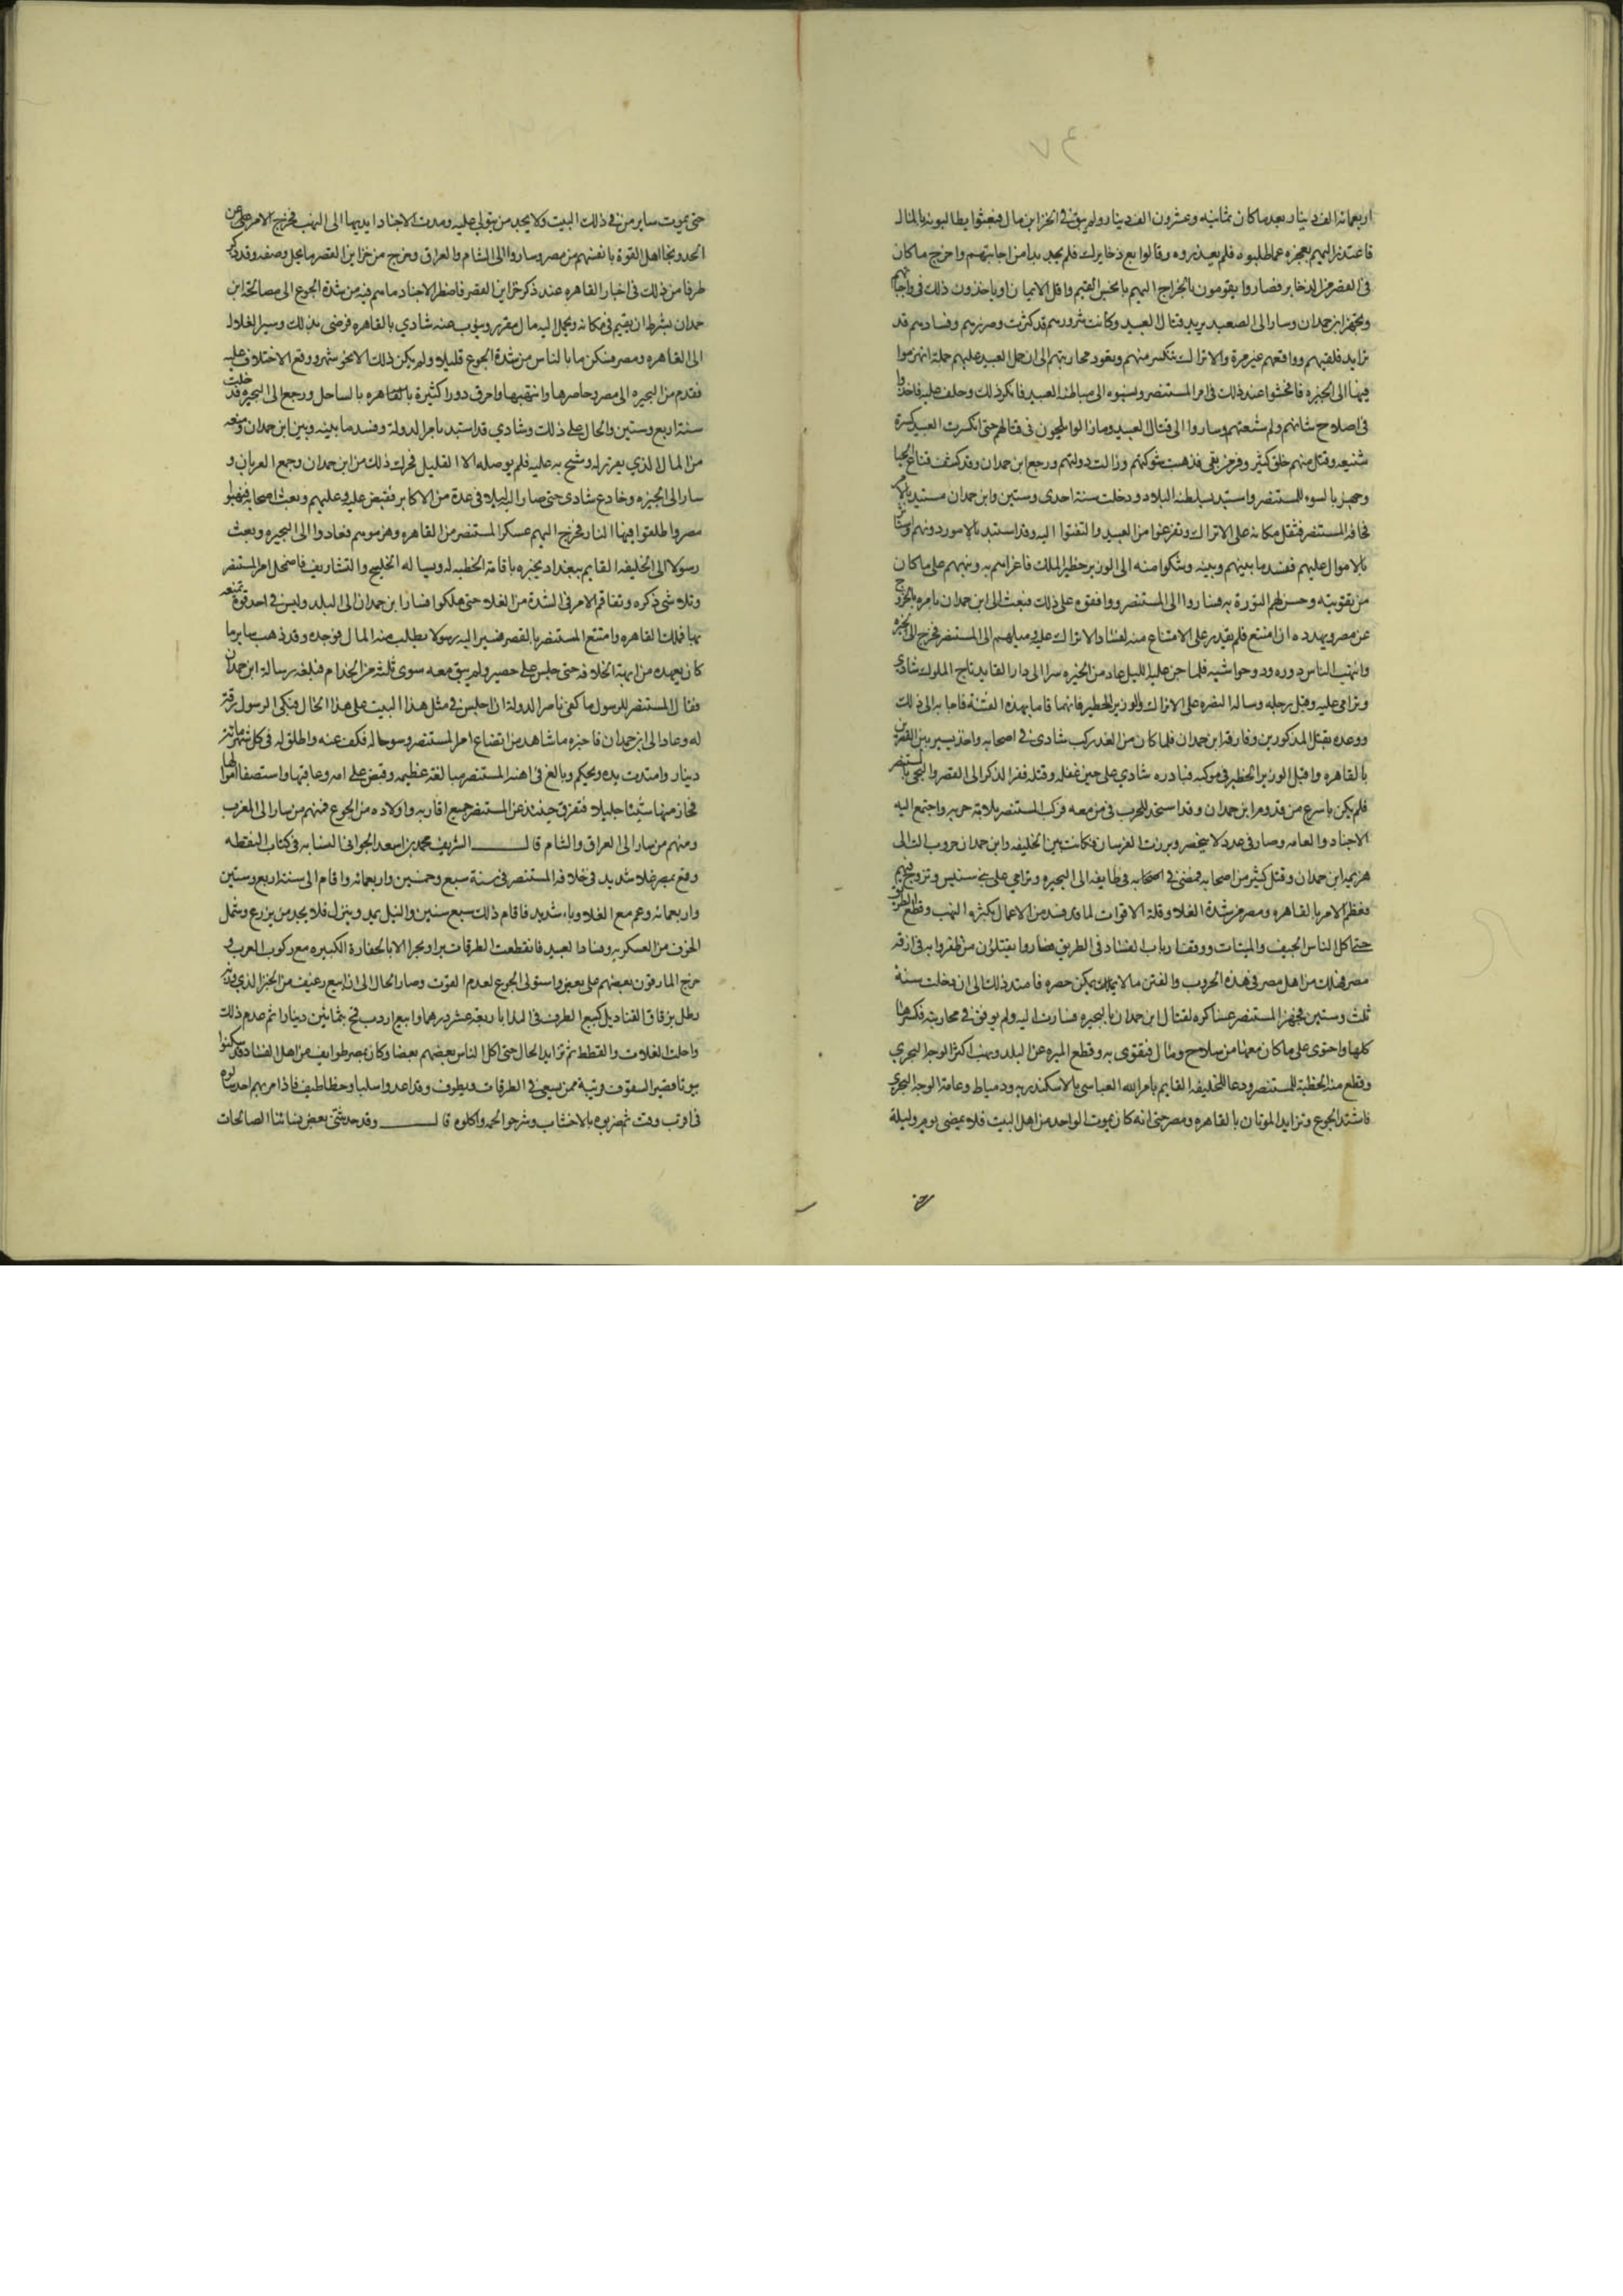 اربعمائة الف دينار بعد ما كان ثمانيه وعشرون الف دينار ولم يبق في الخزاين مال فبعثوا يطالبونه بالمال
فاعتذر اليهم بعجزه عما طلبوه فلم يعذروه وقالوا بع ذخايرك فلم يجد بدا من اجابتهم واخرج ما كان
في القصر من الذخاير فصاروا يقومون ما يخرج اليهم بابخس القيم واقل الاثمان وياخذون ذلك في واجباتهم
وتجهز ابن حمدان وسار الى الصعيد يريد قتال العبيد وكانت شرورهم قد كثرت وضررهم وفسادهم قد
تزايد فلقيهم وواقعهم غير مرة والاتراك تنكسر منهم وتعود محاربتهم الى ان حمل العبيد عليهم حملة انهزموا
فيها الى الجيزه فافحشوا عند ذلك في امر المستنصر ونسبوه الى مباطنة العبيد فانكر ذلك وحلف عليه فاخذوا
في اصلاح شانهم ولم شعثهم وساروا الى قتال العبيد ومازالوا يلحون في قتالهم حتى انكسرت العبيد كسرة
شنيعه وقتل منهم خلق كثير وفر من بقي فذهبت شوكتهم وزالت دولتهم ورجع ابن حمدان وقد كشف قناع الحيا
وجهر بالسوء للمستنصر واستبد بسلطنه البلاد ودخلت سنة احدى وستين وابن حمدان مستبد بالامر
مخافه المستنصر فثقل مكانه على الاتراك وتفرغوا من العبيد والتفتوا اليه وقد استبد بالامور دونهم واستاثر
بالاموال عليهم ففسد ما بينهم وبينه وشكوا منه الى الوزير خطير الملك فاغراهم به ولامهم على ما كان
من تقويته وحسن لهم الثورة به فصاروا الى المستنصر ووافقوه على ذلك فبعث الى ابن حمدان يامره بالخروج
عن مصر ويهدده ان امتنع فلم يقدر على الامتناع منه لفساد الاتراك عليه وميلهم الى المستنصر فخرج الى الجيزه
وانتهب الناس دوره ودور حواشيه فلما جن عليه الليل عاد من الجيزه سرا الى دار القايد تاج الملوك شادي
وترامى عليه وقبل رجله وساله النصره على الاتراك والوزير الخطير فانهما قاما بهذه الفتنة فاجابه الى ذلك
ووعده بقتل المذكورين وفارقه ابن حمدان فلما كان من الغد ركب شادي في اصحابه واخذ يسير بين القصرين
بالقاهره واقبل الوزير الخطير في موكبه فبادره شادي على حين غفله وقتله ففر الدكز الى القصر والتجى بالمستنصر
فلم يكن باسرع من قدوم ابن حمدان وقد استعد للحرب فيمن معه فركب المستنصر بلامة حربه واجتمع اليه
الاجناد والعامه وصار في عدد لا ينحصر وبرزت الفرسان فكانت بين الخليفه وابن حمدان حروب الت الى
هزيمه ابن حمدان وقتل كثير من اصحابه فمضى في اصحابه في طايفه الى البحيره وترامى على بني سنبس وتزوج منهم
فعظم الامر بالقاهره ومصر من شدة الغلا وقلة الاقوات لما فسد من الاعمال بكثره النهب وقطع الطريق
حتى اكل الناس الجيف والميتات ووقف ارباب الفساد في الطريق فصاروا يقتلون من ظفروا به في ازقه
مصر فهلك من اهل مصر في هذه الحروب والفتن ما لا يمكن حصره فامتد ذلك الى ان دخلت سنة
ثلث وستين فجهز المستنصر عساكره لقتال ابن حمدان بالبحيره فسارت اليه ولم يوفق في محاربته فكسرها
كلها واحتوى على ما كان معها من سلاح ومال فتقوى به وقطع الميره عن البلد ونهب اكثر الوجه البحري
وقطع منه الخطبة للمستنصر ودعا للخليفه القايم بامر الله العباسي بالاسكندريه ودمياط وعامة الوجه البحري
فاشتد الجوع وتزايد الموتان بالقاهره ومصر حتى انه كان يموت الواحد من اهل البيت فلا يمضي يوم وليلة
حتى يموت ساير من في ذلك البيت ولا يجد من يتولى عليه ومدت الاجناد ايديها الى النهب فخرج الامر عن
الحد ونجا اهل القوة بانفسهم من مصر وساروا الى الشام والعراق وخرج من خزاين القصر ما يجل وصفه وقد ذكر
طرفا من ذلك في اخبار القاهره عند ذكر خزاين القصر فاضطر الاجناد ما هم فيه من شدة الجوع الى مصالحة ابن
حمدان بشرط ان يقيم في مكانه ويحمل اليه مال مقرر وينوب عنه شادي بالقاهره فرضى بذلك وسير الغلال
الى القاهره ومصر فسكن ما بالناس من شدة الجوع قليلا ولم يكن ذلك الا نحو شهر ووقع الاختلاف عليه
فقدم من البحيره الى مصر وحاصرها وانتهبها واحرق دورا كثيرة بالقاهره بالساحل ورجع الى البحيره فدخلت
سنة اربع وستين والحال على ذلك وشادي قد استبد بامر الدولة وفسد ما بينه وبين ابن حمدان ومنعه
من المال الذي يقرر له وشح به عليه فلم يوصله الا القليل فحرك ذلك من ابن حمدان وجمع العربان و
سار الى الجيزه وخادع شادي حتى صار اليه ليلا في عدة من الاكابر فقبض عليه وعليهم وبعث اصحابه فنهبوا
مصر واطلقوا فيها النار فخرج اليهم عسكر المستنصر من القاهره وهزموهم فعادوا الى البحيره وبعث
رسولا الى الخليفه القايم ببغداد يخبره باقامة الخطبه له وساله الخلع والتشاريف فاضمحل امر المستنصر
وتلاشى ذكره وتفاقم الامر في الشدة من الغلا حتى هلكوا فسار ابن حمدان الى البلد وليس في احد قوة تمنعه
بها فملك القاهره وامتنع المستنصر بالقصر فسير اليه رسولا يطلب منه المال فوجده وقد ذهب ساير ما
كان يعهده من ابهة الخلافه حتى جلس على حصير ولم يبق معه سوى ثلثة من الخدام فبلغه رسالة ابن حمدان
فقال المستنصر للرسول ما كفى ناصر الدولة ان اجلس في مثل هذا البيت على هذا الحال فبكى الرسول رقة
له وعاد الى ابن حمدان فاخبره ما شاهد من اتضاع امر المستنصر وسوحاله فكف عنه واطلق له في كل شهر مائة
دينار وامتدت يده وتحكم وبالغ في اهنة المستنصر مبالغة عظيمه وقبض على امه وعاقبها واستصفى اموالها
فحاز منها شيئا جليلا فتفرق حينئذ عن المستنصر جميع اقاربه واولاده من الجوع فمنهم من سار الى المغرب
ومنهم من سار الى العراق والشام قال الشريف محمد بن اسعد الجواني النسابه في كتاب النقطه
وقع بمصر غلا شديد في خلافه المستنصر في سنة سبع وخمسين واربعمائه واقام الى سنة اربع وستين
واربعمائه وعم مع الغلا وباء شديد فاقام ذلك سبع سنين والنيل يمد وينزل فلا يجد من يزرع وشمل
الخوف من العسكريه وفساد العبيد فانقطعت الطرقات برا وبحرا الا بالخفارة الكبيره مع ركوب الغرر و
خرج المارقون بعضهم على بعض واستولى الجوع لعدم القوت وصار الحال الى ان ابيع رغيف من الخبز الذي وزنه
رطل بزقاق القناديل كبيع الطرف في الندا باربعة عشر درهما وابيع اردب قمح بثمانين دينارا ثم عدم ذلك
واكلت الكلاب والقطط ثم تزايد الحال حتى اكل الناس بعضهم بعضا وكان بمصر طوايف من اهل الفساد قد سكنوا
بيوتا قصيرة السقوف قريبة ممن يسعى في الطرقات ويطوف وقد اعدوا سلبا وخطاطيف فاذا مر بهم احد شالوه
في اقرب وقت ثم ضربوه بالاخشاب وشرحوا لحمه واكلوه قال وقد حدثني بعض نسائنا الصالحات